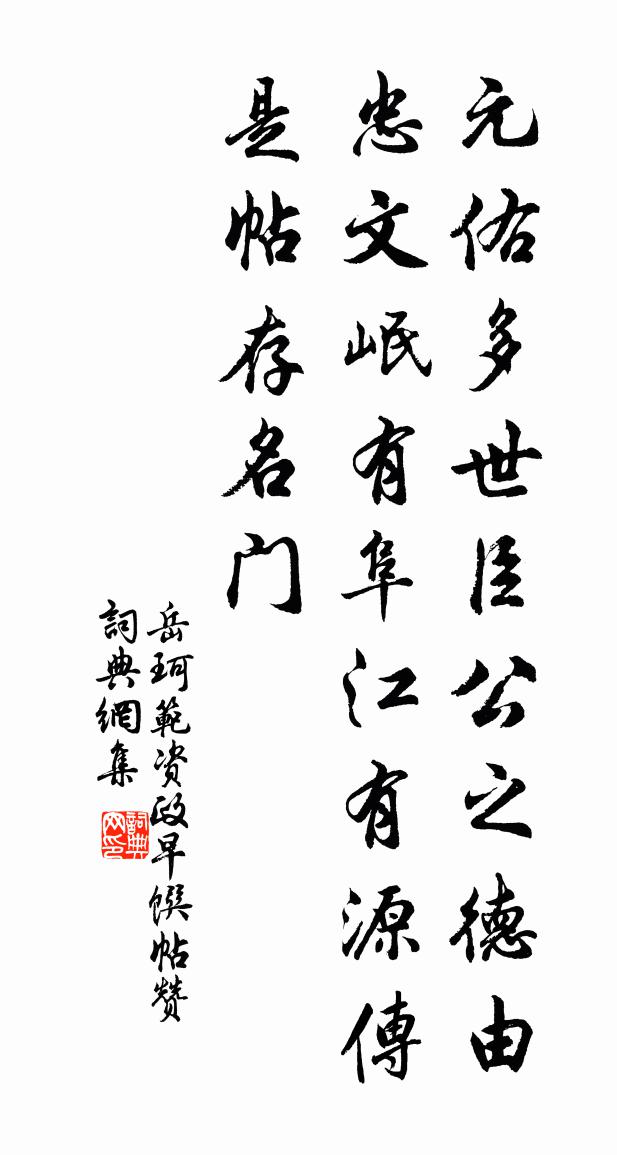 元佑多世臣公之德由
忠文岷有阜江有源傳
是帖存名门
岳珂範资政早馔帖赞
詞典網集
詞典网印